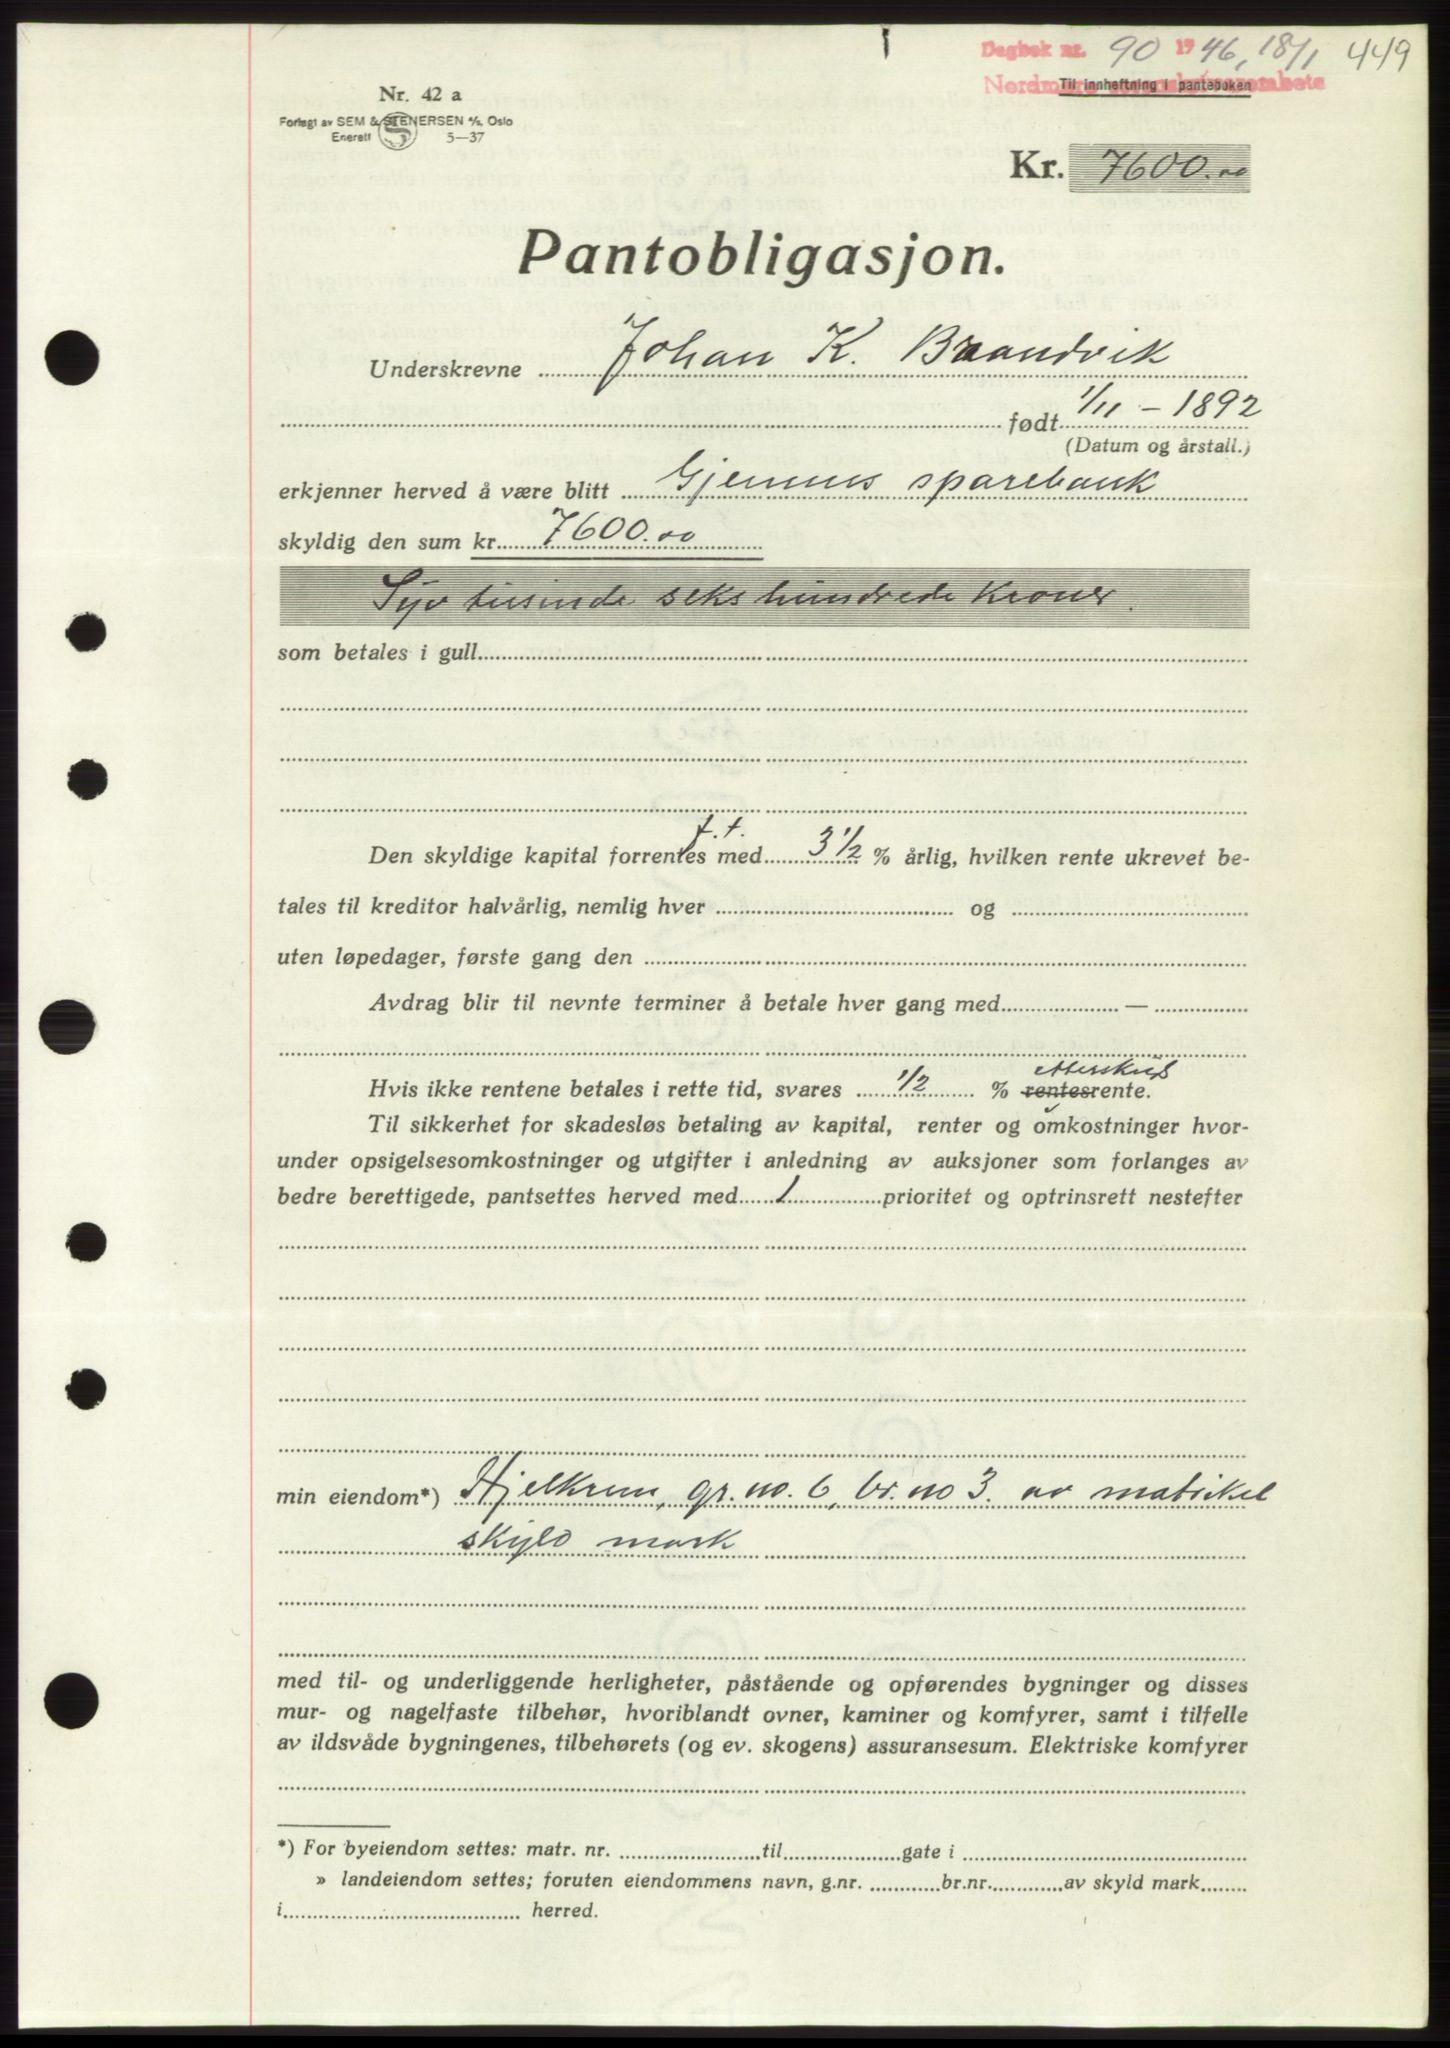 Dagbok nr. 90 1946, 18/1 449
Til innheftning i panteboken
Nr. 42 a
Forlagt av SEM & STENERSEN A/S, Oslo
Enerett 5—37
Kr. 7600.00
Pantobligasjon.
Underskrevne Johan K. Brandvik
født 1/11 - 1892
(Datum og årstall.)
erkjenner herved å være blitt Gjemnes sparebank
skyldig den sum kr. 7600.00
Syv tusinde seks hundrede Kroner.
som betales i gull
f.t.
Den skyldige kapital forrentes med 3 1/2 % årlig, hvilken rente ukrevet be-
tales til kreditor halvårlig, nemlig hver og
uten løpedager, første gang den
Avdrag blir til nevnte terminer å betale hver gang med —
etterskuds
Hvis ikke rentene betales i rette tid, svares 1/2 % rentesrente.
Til sikkerhet for skadesløs betaling av kapital, renter og omkostninger hvor-
under opsigelsesomkostninger og utgifter i anledning av auksjoner som forlanges av
bedre berettigede, pantsettes herved med 1 prioritet og optrinsrett nestefter
min eiendom*) Hjelkrem, gr. no. 6, br. no 3. av matrikel
skyld mark
med til- og underliggende herligheter, påstående og opførendes bygninger og disses
mur- og nagelfaste tilbehør, hvoriblandt ovner, kaminer og komfyrer, samt i tilfelle
av ildsvåde bygningenes, tilbehørets (og ev. skogens) assuransesum. Elektriske komfyrer
*) For byeiendom settes: matr. nr. til gate i
» landeiendom settes; foruten eiendommens navn, g.nr. br.nr. av skyld mark
i herred.